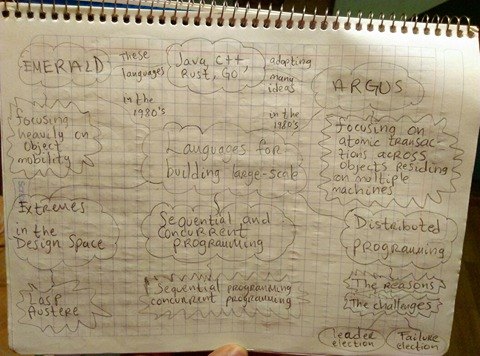 EMERALD
These
languages
in the
1980's
Java, C++,
Rust, GO
adopting
many
ideas
in the
1980's
ARGUS
focusing
heavily on
Object
mobility
Languages for
building large-scale
focusing on
atomic transac-
tions across
Objects residing
on multiple
machines
Extremes
in the
Design Space
Sequential and
concurrent
programming
Distributed
programming
Lasp
Austere
Sequential programming
concurrent programming
The reasons
The challenges
leader
election
Failure
election